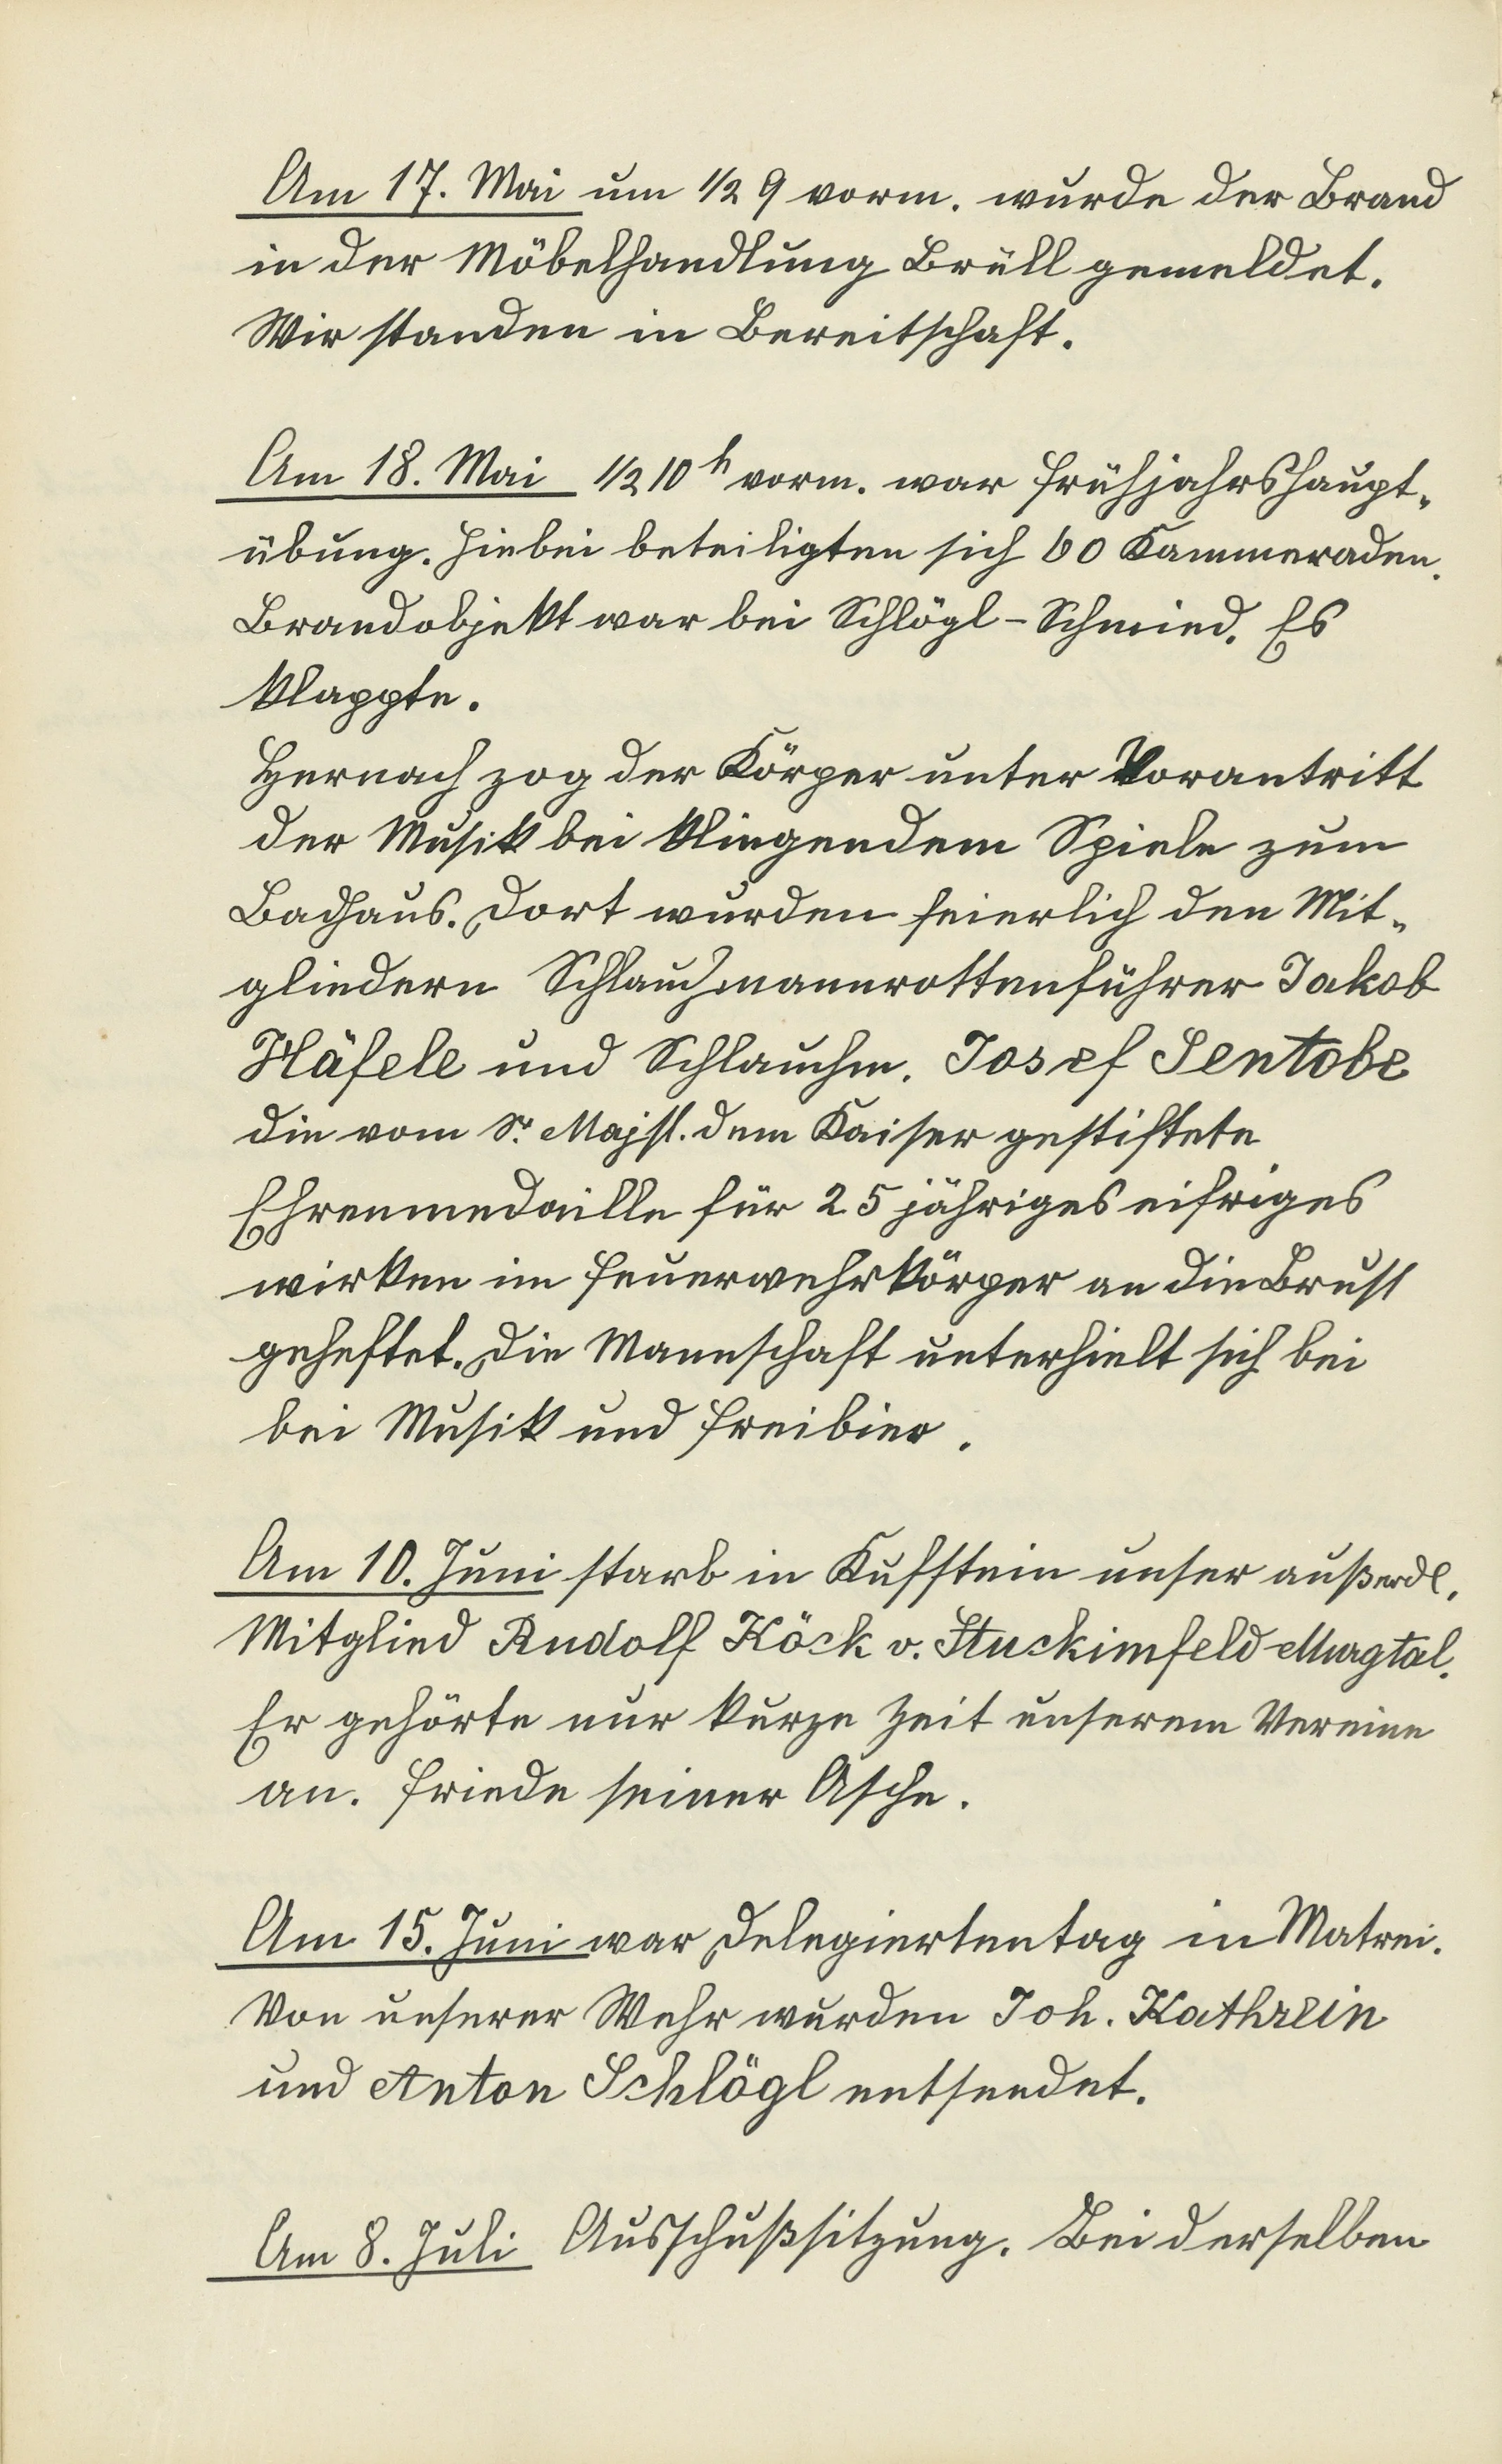 Am 17. Mai um 1/2 9 vorm. wurde der Brand
in der Möbelhandlung Brüll gemeldet.
Wir standen in Bereitschaft.
Am 18. Mai 1/2 10 h vorm. war Frühjahrshaupt-
übung. Hiebei beteiligten sich 60 Kammeraden.
Brandobjekt war bei Schlögl-Schmied. Es
klappte.
Hernach zog der Körper unter Vorantritt
der Musik bei klingendem Spiele zum
Badhaus. Dort wurden feierlich den Mit-
gliedern Schlauchmannrottenführer Jakob
Häfele und Schlauchm. Josef Sentobe
die vom Sr. Majst. dem Kaiser gestiftete
Ehrenmedaille für 25 jähriges eifriges
wirken im Feuerwehrkörper an die Brust
geheftet. Die Mannschaft unterhielt sich bei
bei Musik und Freibier.
Am 10. Juni starb in Kufstein unser außerdl.
Mitglied Rudolf Köck v. Stuckimfeld-Murgtal.
Er gehörte nur kurze Zeit unserem Vereine
an. Friede seiner Asche.
Am 15. Juni war Delegiertentag in Matrei.
Von unserer Wehr wurden Joh. Kathrein
und Anton Schlögl entsendet.
Am 8. Juli Ausschußsitzung. Bei derselben